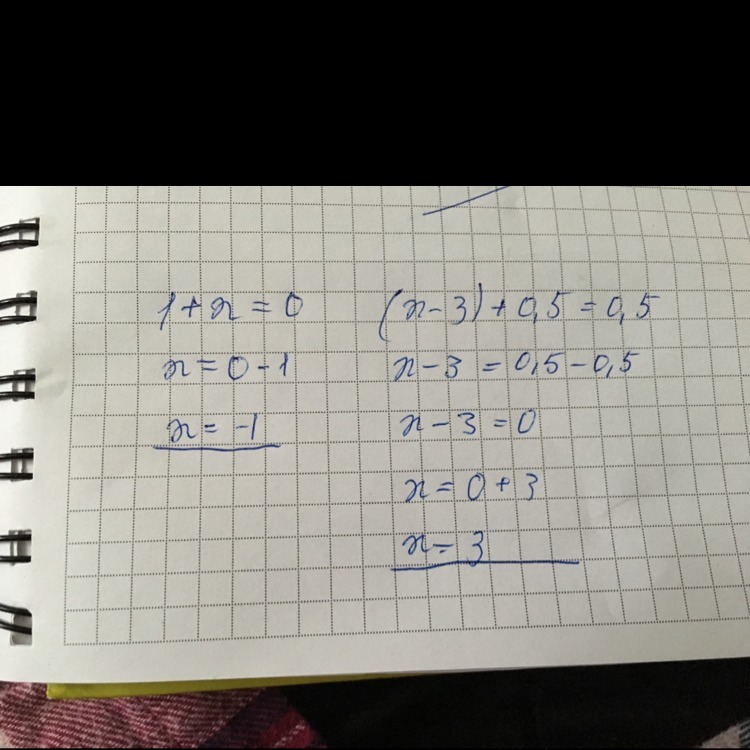 1+x=0
x=0-1
x=-1
(x-3)+0,5=0,5
x-3=0,5-0,5
x-3=0
x=0+3
x=3